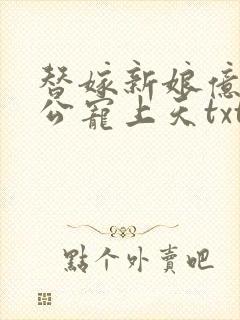 替嫁新娘億
公寵上天txt
點个外賣吧